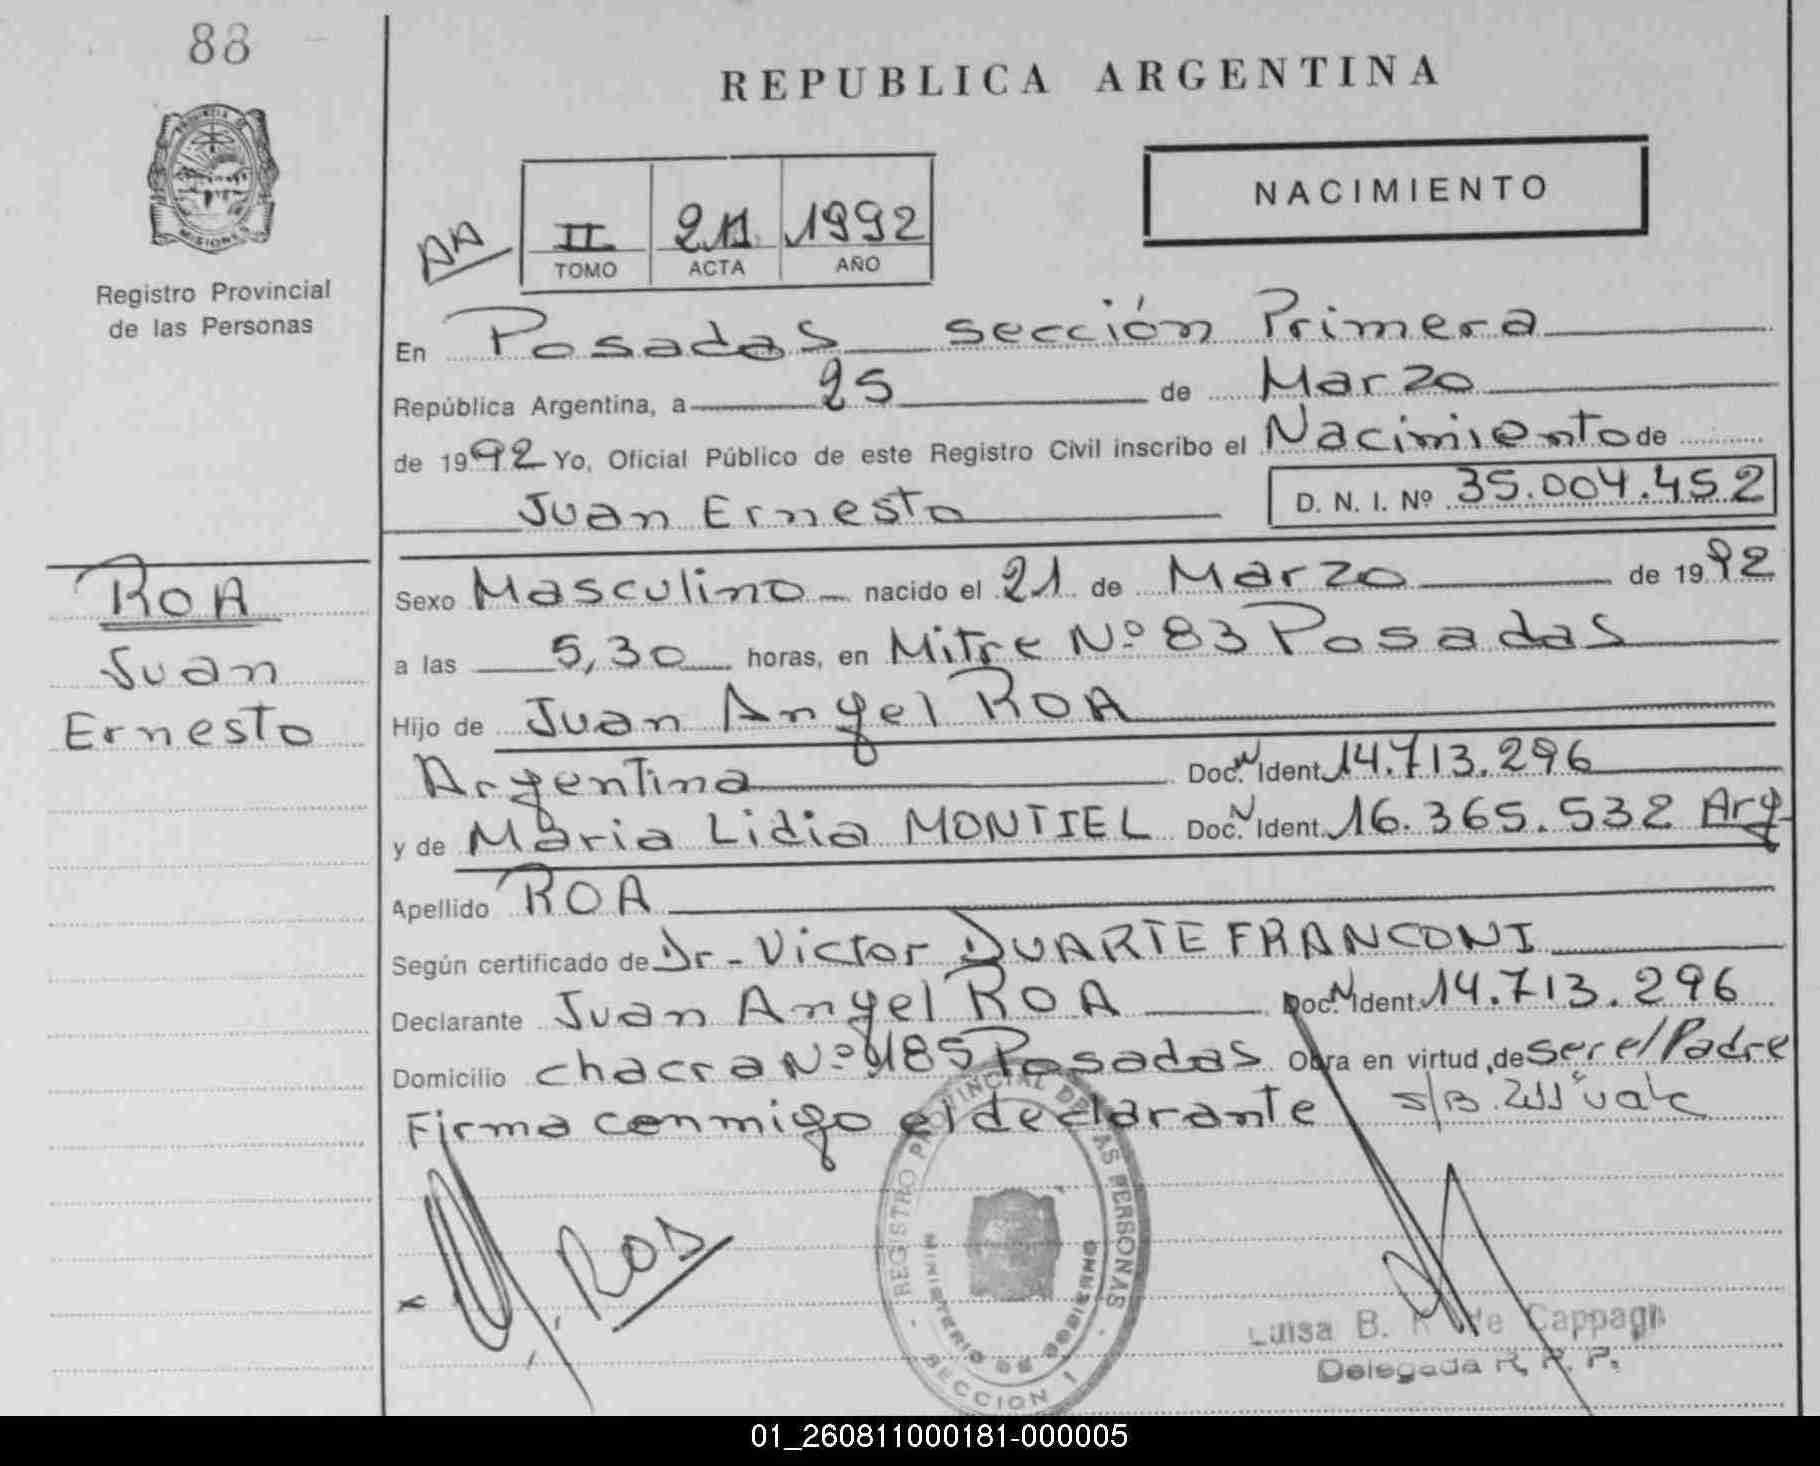 88
REPUBLICA ARGENTINA
NACIMIENTO
II 211 1992
TOMO ACTA AÑO
PROVINCIA DE MISIONES
Registro Provincial
de las Personas
En Posadas sección Primera
República Argentina, a 25 de Marzo
de 1992 Yo, Oficial Público de este Registro Civil inscribo el Nacimiento de
Juan Ernesto D. N. I. Nº 35.004.452
ROA
Juan
Ernesto
Sexo Masculino nacido el 21 de Marzo de 1992
a las 5,30 horas, en Mitre Nº 83 Posadas
Hijo de Juan Angel ROA
Argentina Doc. N Ident. 14.713.296
y de Maria Lidia MONTIEL Doc. N Ident. 16.365.532 Arg
Apellido ROA
Según certificado de Dr - Victor DUARTE FRANCONI
Declarante Juan Angel ROA Doc. N Ident. 14.713.296
Domicilio chacra Nº 185 Posadas Obra en virtud, de ser el Padre
Firma conmigo el declarante S/B. 211 vale
ROA
REGISTRO PROVINCIAL DE LAS PERSONAS
MINISTERIO DE GOBIERNO
SECCION 1
Luisa B. de Cappagli
Delegada R. P. P.
01_260811000181-000005